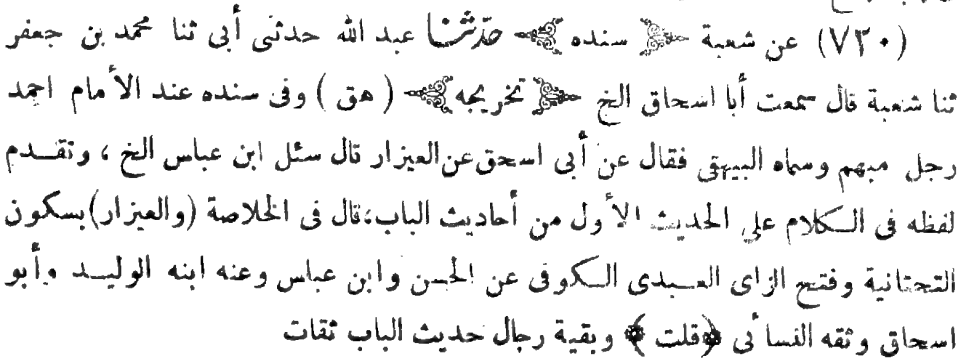 (٧٣٠) عن شعبة ﴿ سنده ﴾ حدثنا عبد الله حدثنى أبى ثنا محمد بن جعفر
ثنا شعبة قال سمعت أبا اسحاق الخ ﴿ تخريجه ﴾ ( هق ) وفى سنده عند الأمام احمد
رجل مبهم وسماه البيهقى فقال عن أبى اسحق عن العيزار قال سئل ابن عباس الخ ، وتقدم
لفظه فى الكلام على الحديث الأول من أحاديث الباب،قال فى الخلاصة (والعيزار)بسكون
التحتانية وفتح الزاى العبدى الكوفى عن الحسن وابن عباس وعنه ابنه الوليد وأبو
اسحاق وثقه النسائى ﴿قلت ﴾ وبقية رجال حديث الباب ثقات